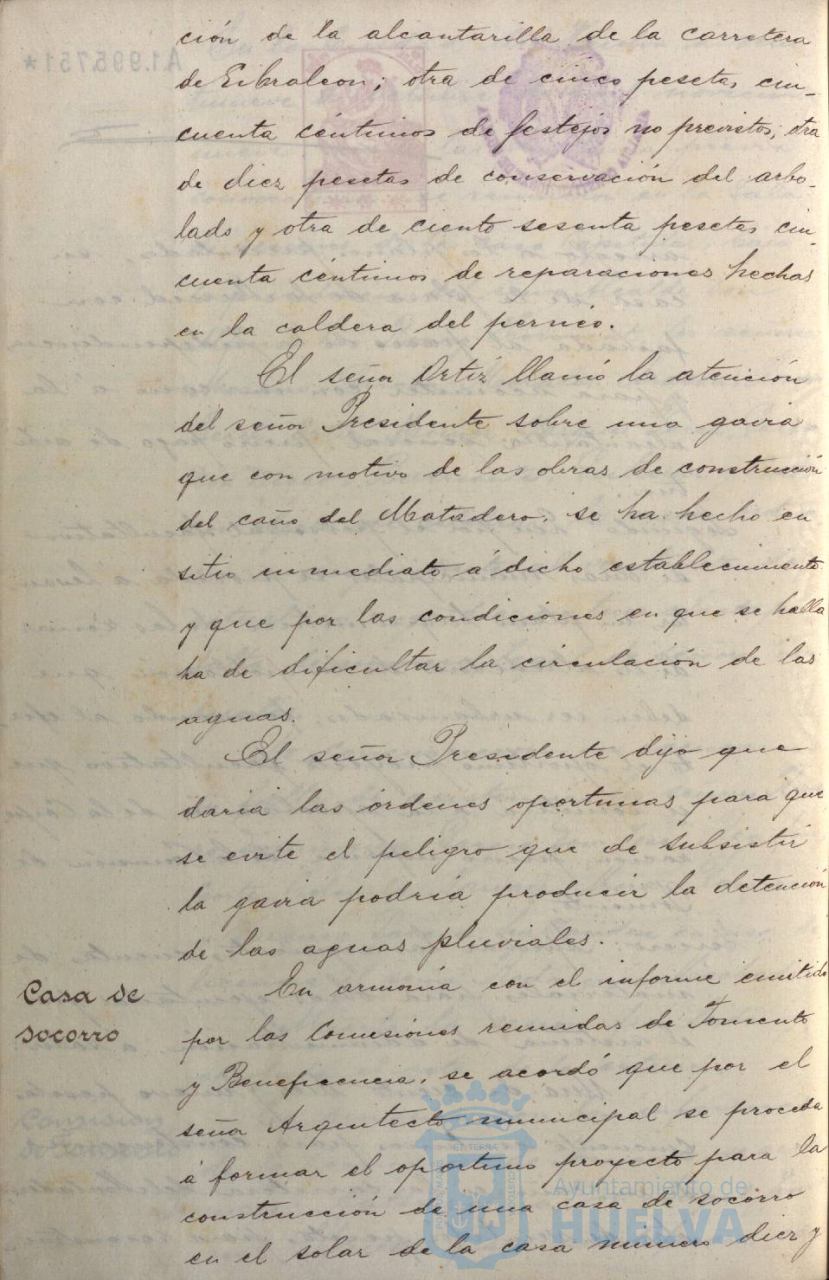 ción de la alcantarilla de la carretera
de Gibraleon; otra de cinco pesetas cin-
cuenta céntimos de festejos no previstos; otra
de diez pesetas de conservación del arbo-
lado y otra de ciento sesenta pesetas cin-
cuenta céntimos de reparaciones hechas
en la caldera del perneo.
El señor Ortiz llamó la atención
del señor Presidente sobre una gavia
que con motivo de las obras de construcción
del caño del Matadero, se ha hecho en
sitio inmediato á dicho establecimiento
y que por las condiciones en que se halla
ha de dificultar la circulación de las
aguas.
El señor Presidente dijo que
daria las órdenes oportunas para que
se evite el peligro que de subsistir
la gavia podría producir la detención
de las aguas pluviales.
Casa de
socorro
En armonía con el informe emitido
por las Comisiones reunidas de Fomento
y Beneficencia, se acordó que por el
señor Arquitecto municipal se proceda
á formar el oportuno proyecto para la
construcción de una casa de socorro
en el solar de la casa número diez y
A1.995.751*
Ayuntamiento de
HUELVA